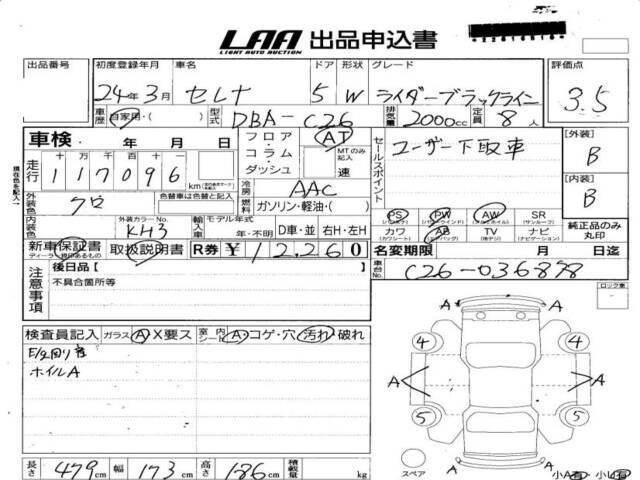 LAA 出品申込書
LIGHT AUTO AUCTION
出品番号 初度登録年月 車名 ドア 形状 グレード 評価点
24年3月 セレナ 5 W ライダーブラックライン 3.5
車歴 自家用・( ) 型式 DBA-C26 排気量 2000cc 定員 8人
車検 年 月 日 フロア・コラム・ダッシュ AT MTのみ記入 速 セールスポイント ユーザー下取車 [外装] B
現在色を記入
走行 十万千百十 117096 km 冷房 AAC [内装] B
外装色 クロ 色替車は色替と記入 元色 燃料 ガソリン・軽油・( ) PS PW AW SR (サンルーフ)
内装色 外装カラーNo. KH3 輸入車 モデル年式 年・不明 D車・並 右H・左H カワ (カワシート) AB (エアバッグ) TV (地デジ) ナビ (ナビゲーション) 純正品のみ丸印
新車保証書 取扱説明書 R券 ¥12,260 名変期限 月 日迄
注意事項 後日品[ ] 車台No. C26-036898
不具合箇所等 ロック車
検査員記入 ガラス A・X要ス 室内シート A・コゲ・穴・汚れ・破れ
ホイルA
4 4
A A A A
5 5
スペア
長さ 479cm 幅 173cm 高さ 186cm 積載量 kg 小A有・小U有